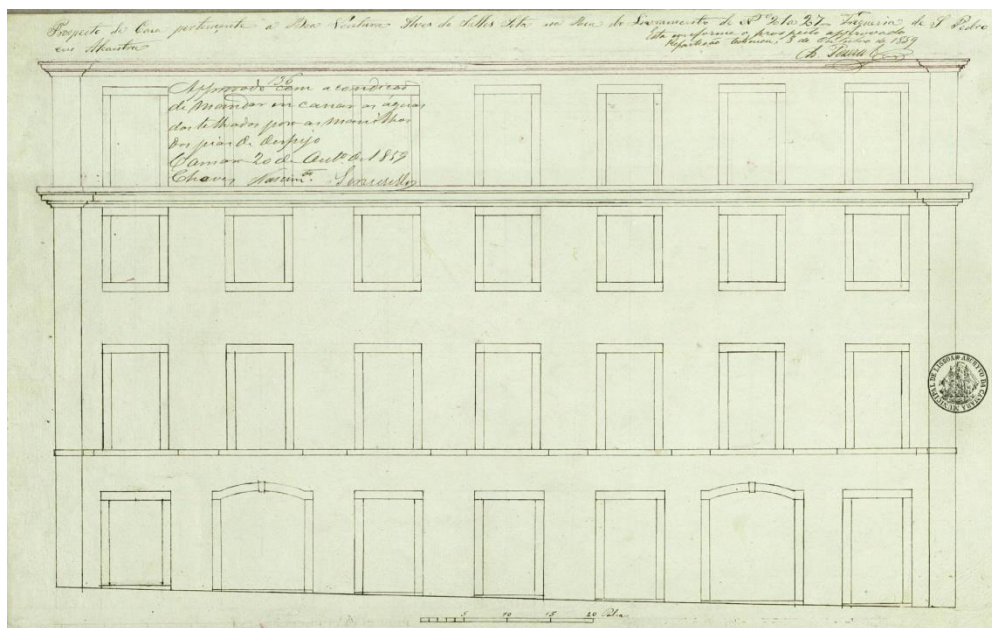 Prospecto de Caza pertencente a Luciana Alves de Selles Sita na Rua do Livramento de Nº 21 a 27 Freguezia de S. Pedro
em Alcantra
Esta conforme o prospecto approvado
Repartição Technica, 8 de Outubro de 1859
136
Approvado com a condicão
de mandar en canar as águas
dos telhados por as manilhas
das pias de despejo
Camara 20 de Outº de 1859
Chaves Nascimto
5 10 15 20 Palm
ARCHIVO DA CAMARA MUNICIPAL DE LISBOA